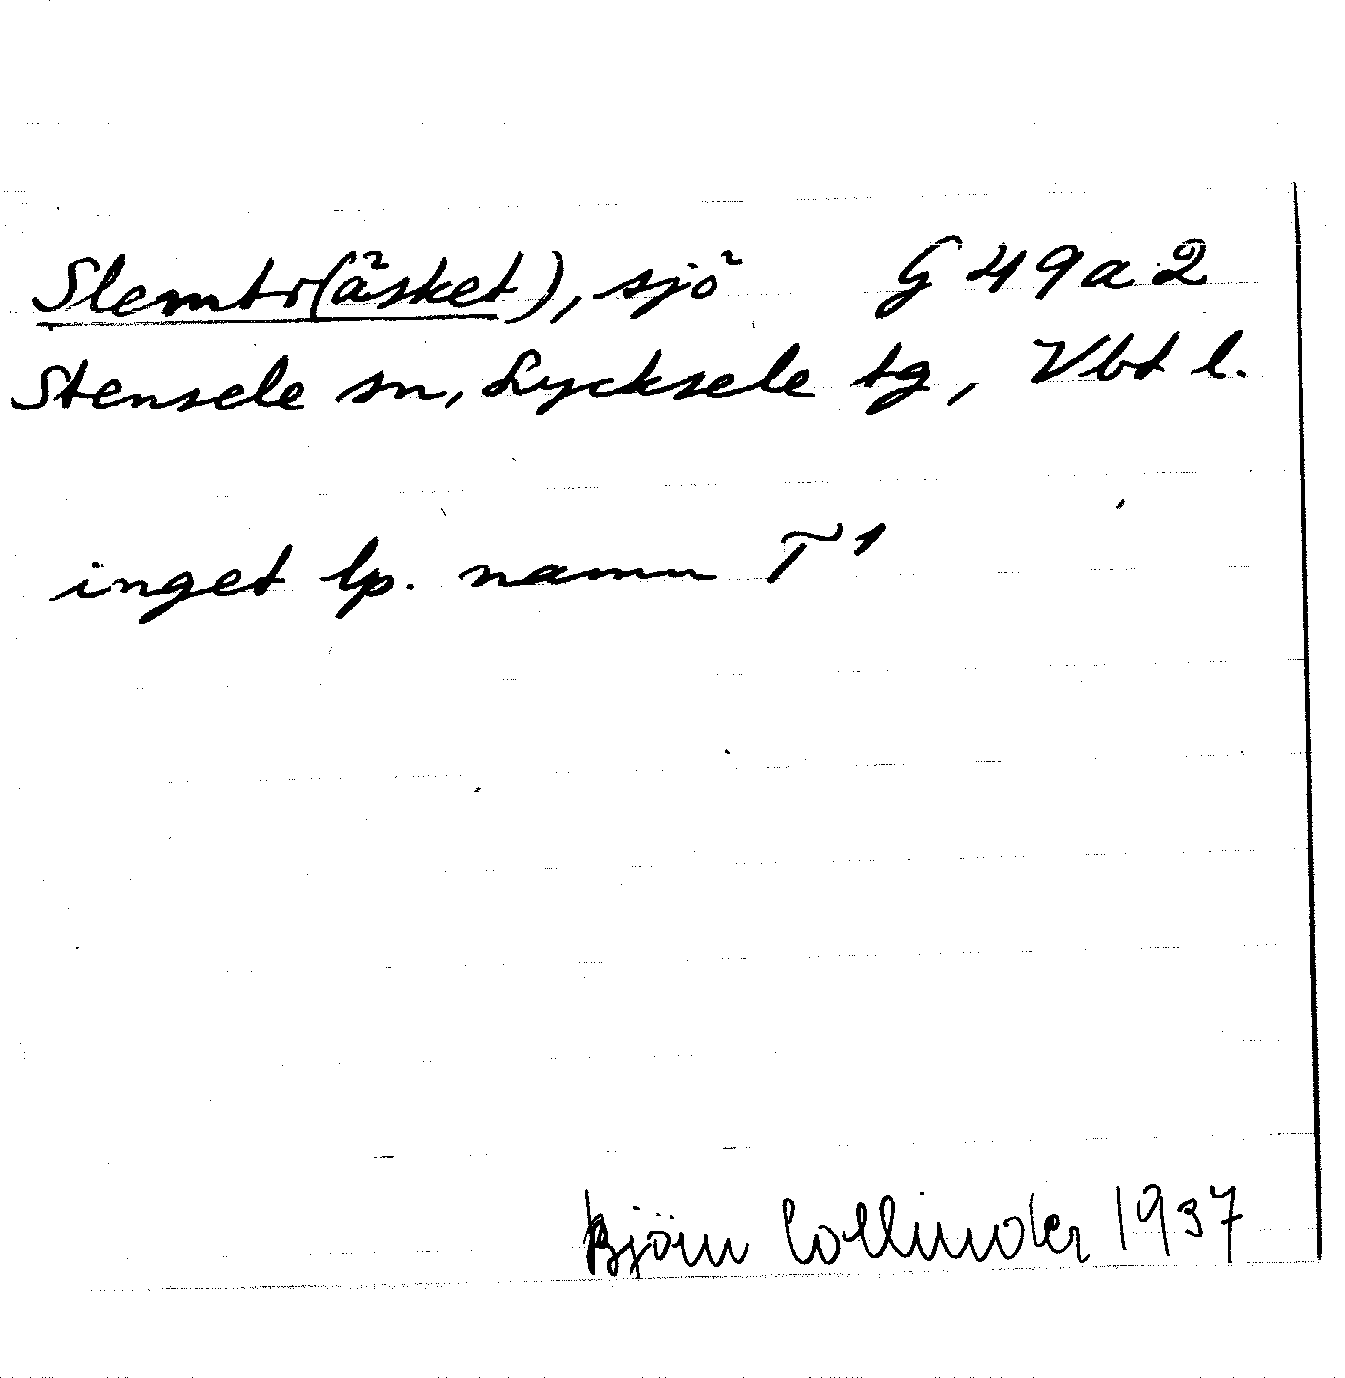 Slemtr(äsket), sjö G 49 a 2
Stensele sn, Lycksele tg, Vbt l.
inget lp. namn T 1
Björn Collinder 1937